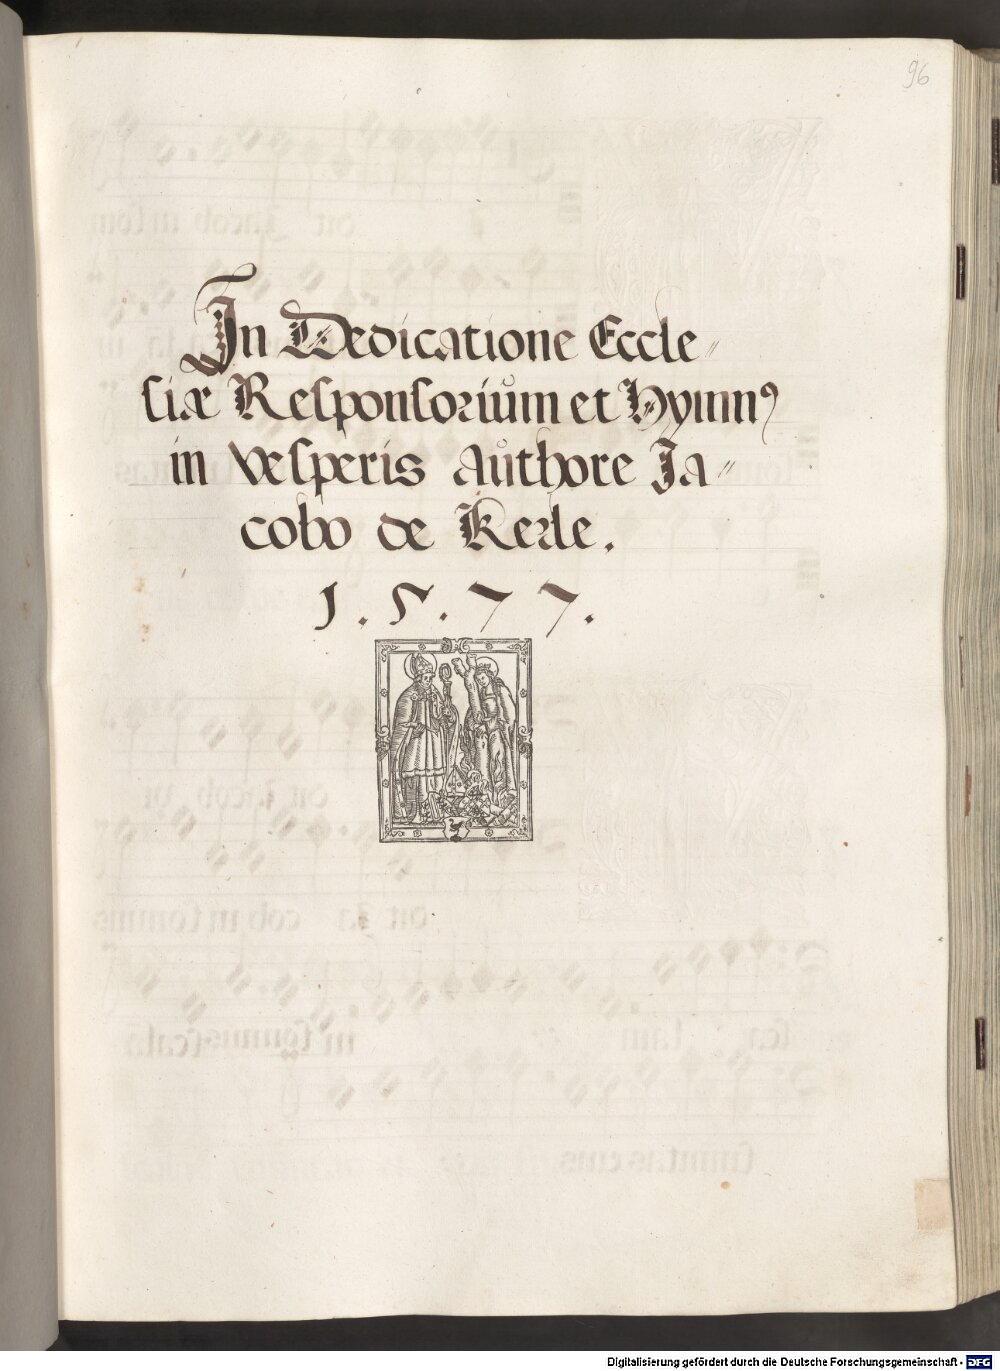 96
In Dedicatione Eccle〃
siæ Responsoriům et Hymnꝯ
in vesperis aůthore Ja〃
cobo de Kerle.
1.5.77.
Digitalisierung gefördert durch die Deutsche Forschungsgemeinschaft - DFG